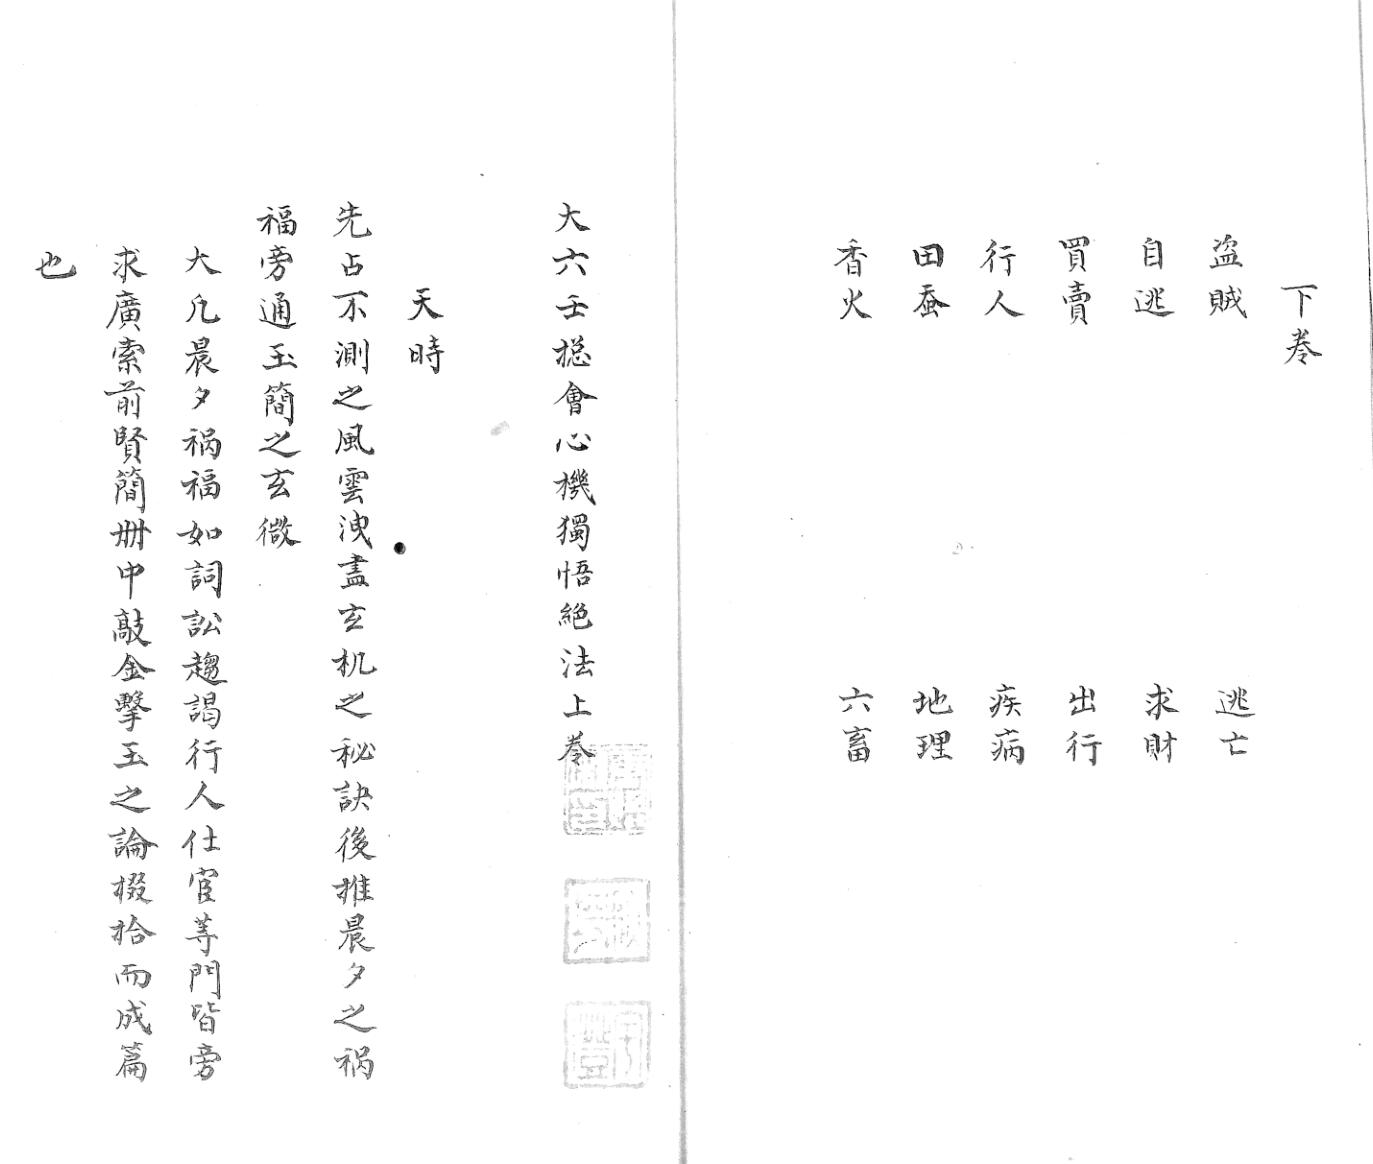 下卷
盜賊　逃亡
自逃　求財
買賣　出行
行人　疾病
田蚕　地理
香火　六畜
大六壬捴會心機獨悟絕法上卷
天時
先占不測之風雲洩盡玄机之秘訣後推晨夕之祸
福旁通玉簡之玄微
大凡晨夕祸福如詞訟趨謁行人仕宦等門皆旁
求廣索前賢簡冊中敲金擊玉之論掇拾而成篇
也